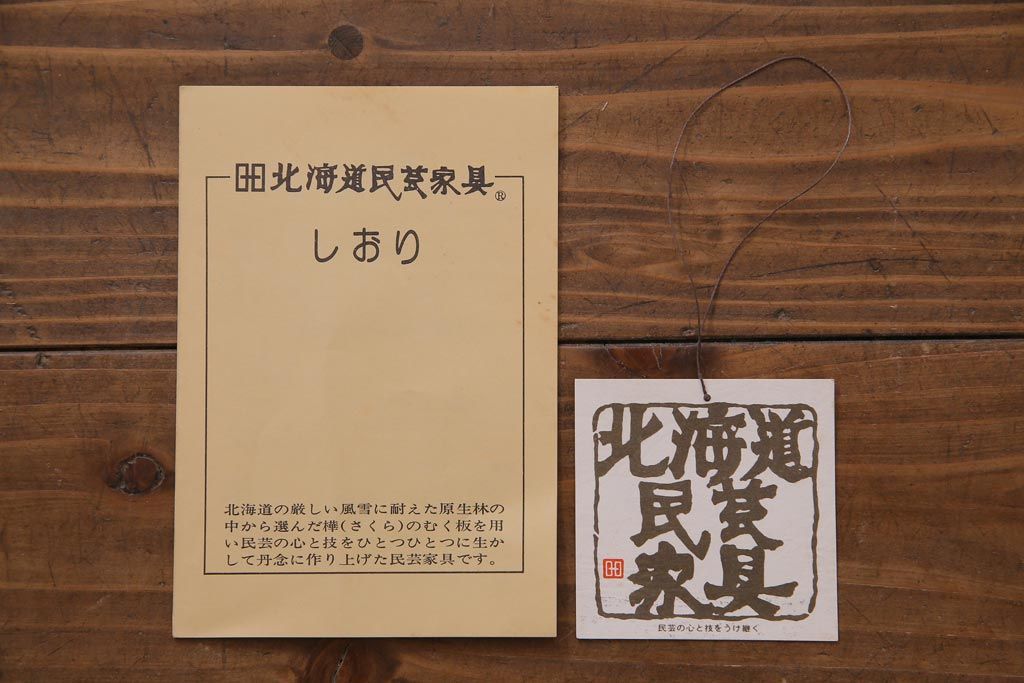 北海道民芸家具®
しおり
北海道の厳しい風雪に耐えた原生林の
中から選んだ樺(さくら)のむく板を用
い民芸の心と技をひとつひとつに生か
して丹念に作り上げた民芸家具です。
北海道
民芸
家具
民芸の心と技をうけ継ぐ